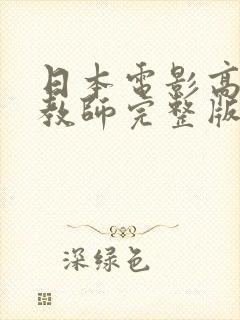 日本電影高
教師完整版
深绿色